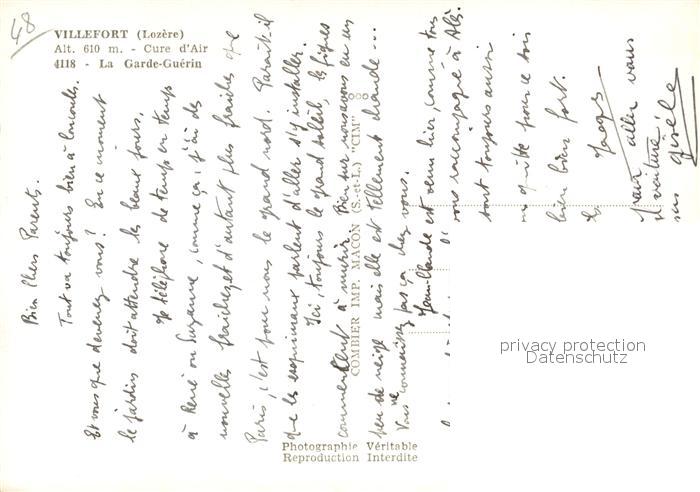 48
VILLEFORT (Lozère)
Alt. 610 m. - Cure d'Air
4118 - La Garde-Guérin
Bien Chers Parents.
Tout va toujours bien à
Et vous que devenez vous? En ce moment
le jardin doit attendre les beaux jours.
Je téléphone de temps en temps
à René ou Suzanne, comme ça, j'ai des
nouvelles fraîches, et d'autant plus fraîches que
Paris, c'est pour nous le grand nord. Paraît-il
que les esquimaux parlent d'aller s'y installer.
Ici, toujours le grand soleil, les figues
commencent à mûrir. Bien sûr nous avons eu un
peu de neige mais elle est tellement chaude...
Vous ne connaissez pas ça chez vous.
Jean-Claude est venu hier, comme tous
sont toujours aussi
bien bien fort.
aller vous
Gisèle
COMBIER IMP. MACON (S.-et-L.) "CIM"
Photographie Véritable
Reproduction Interdite
privacy protection
Datenschutz